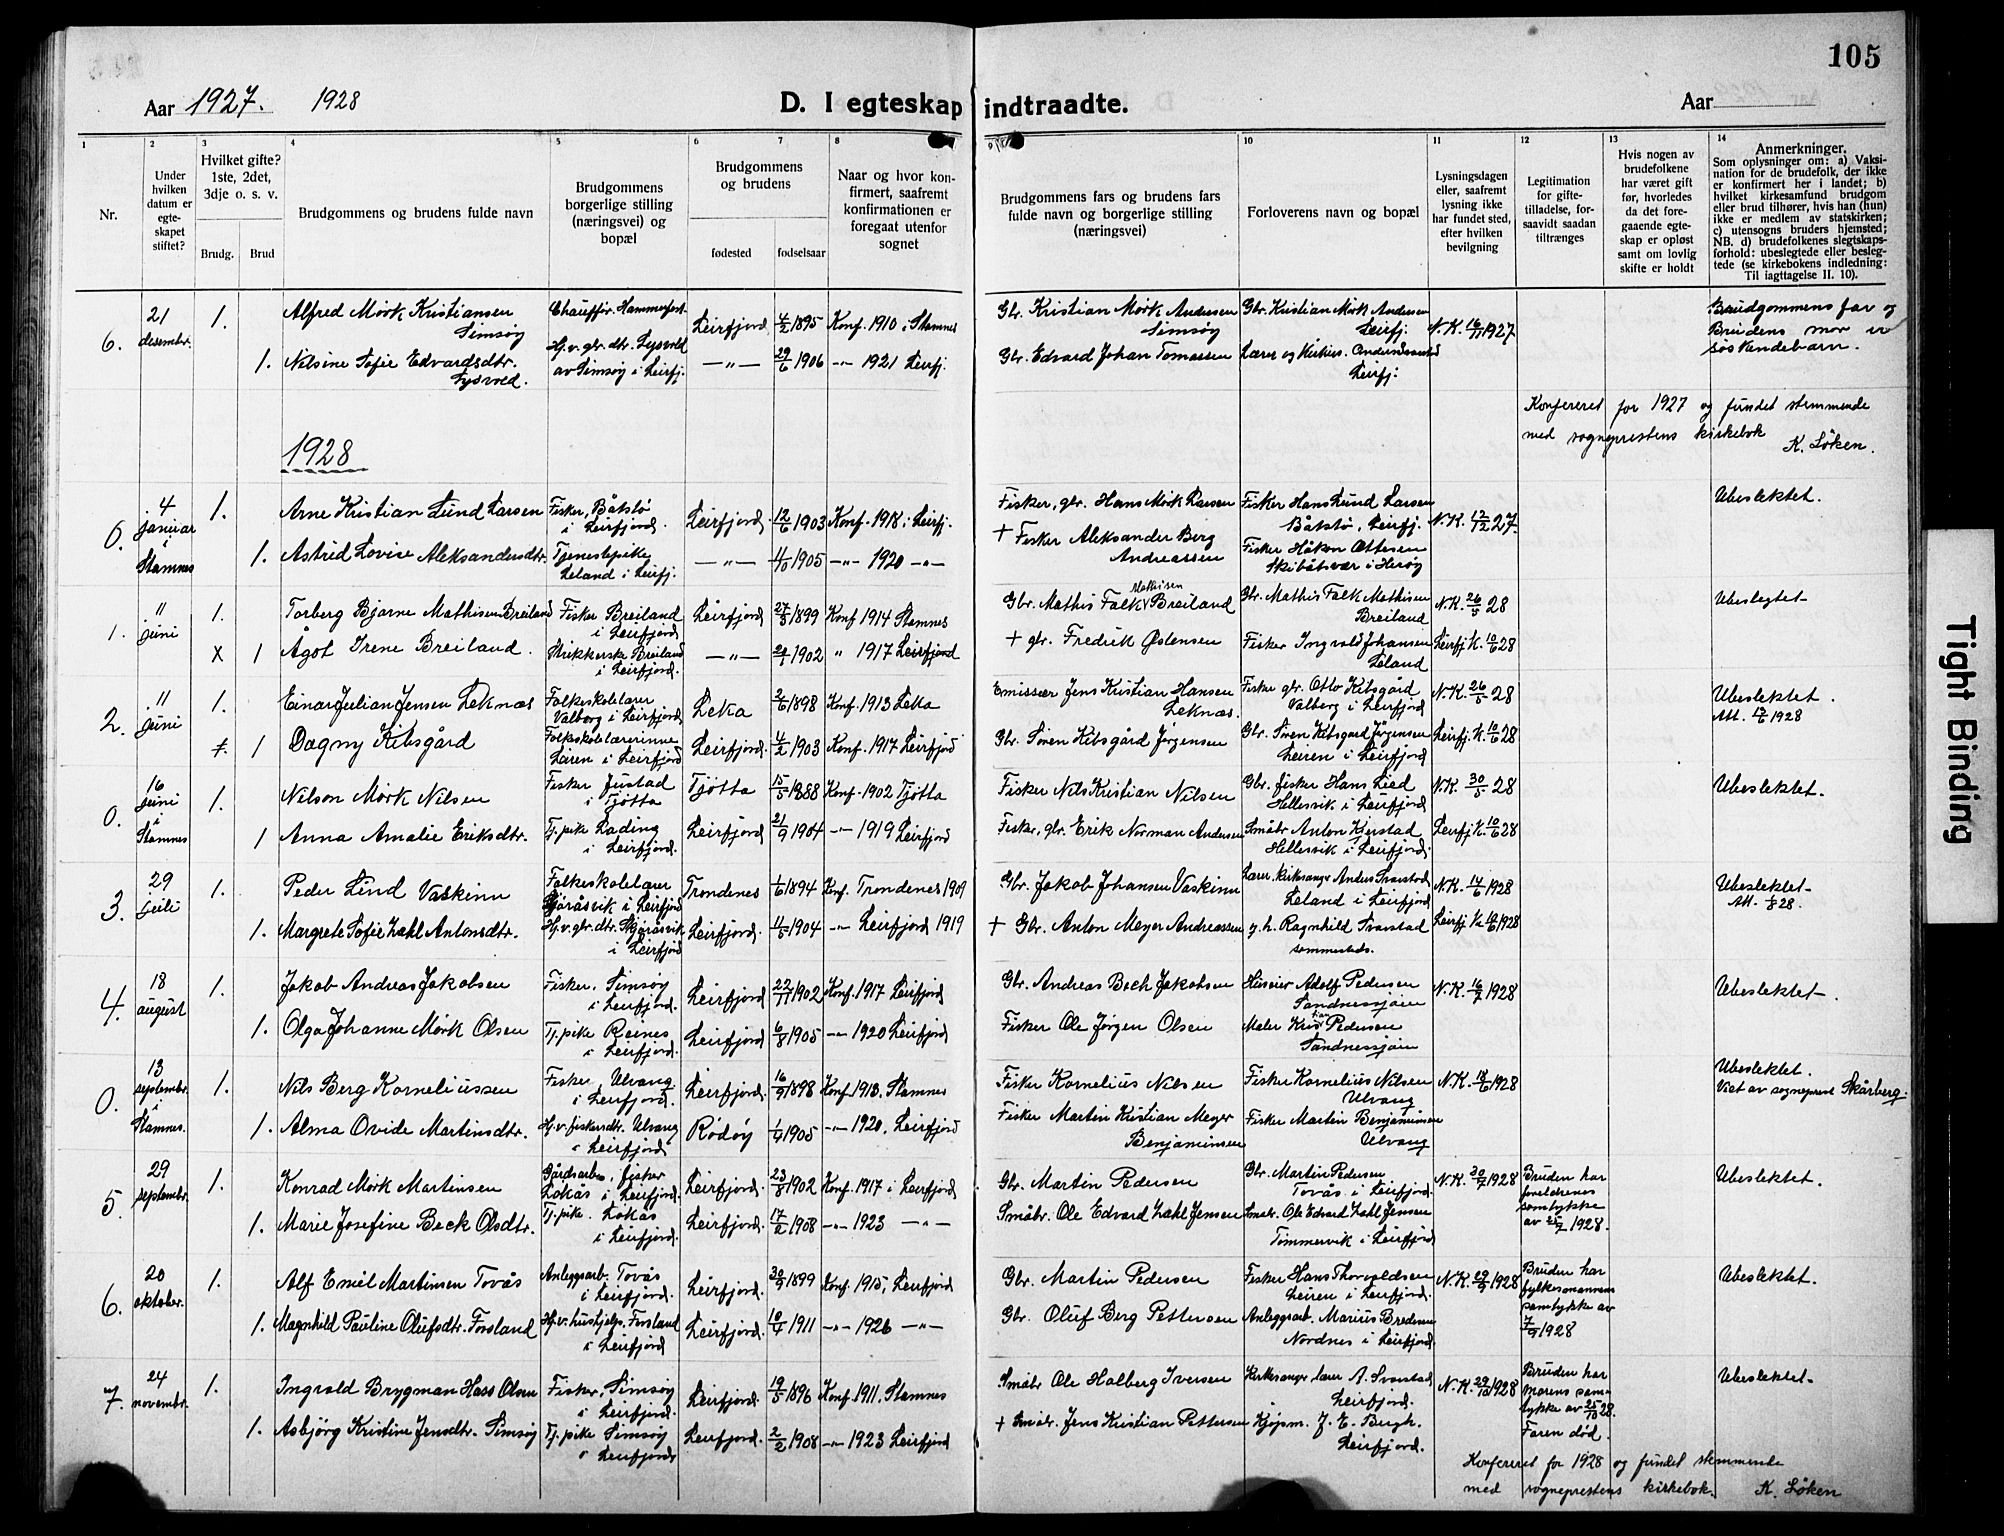 105
Aar 1927. 1928
D. I egteskap indtraadte.
Aar
1 2 3 4 5 6 7 8 9 10 11 12 13 14
Nr.
Under hvilken datum er egte-skapet stiftet?
Hvilket gifte? 1ste, 2det, 3dje o. s. v.
Brudg. Brud
Brudgommens og brudens fulde navn
Brudgommens borgerlige stilling (næringsvei) og bopæl
Brudgommens og brudens
fødested fødselsaar
Naar og hvor kon-firmert, saafremt konfirmationen er foregaat utenfor sognet
Brudgommens fars og brudens fars fulde navn og borgerlige stilling (næringsvei)
Forloverens navn og bopæl
Lysningsdagen eller, saafremt lysning ikke har fundet sted, efter hvilken bevilgning
Legitimation for gifte-tilladelse, for-saavidt saadan tiltrænges
Hvis nogen av brudefolkene har været gift før, hvorledes da det fore-gaaende egte-skap er opløst samt om lovlig skifte er holdt
Anmerkninger.
Som oplysninger om: a) Vaksi-nation for de brudefolk, der ikke er konfirmert her i landet; b) hvilket kirkesamfund brudgom eller brud tilhører, hvis han (hun) ikke er medlem av statskirken; c) utensogns bruders hjemsted; NB. d) brudefolkenes slegtskaps-forhold: ubeslegtede eller besleg-tede (se kirkebokens indledning: Til iagttagelse II. 10).
6. 21 desembr. 1. Alfred Mørk Kristiansen Simsøy Chauffør. Hammerfest. Leirfjord 4/2 1895 Konf. 1910 i Stamnes Gbr. Kristian Mørk Andersen Simsøy Gbr. Kristian Mørk Andersen Leirfj. N.K. 1927 Brudgommens far og Brudens mor er søskendebarn.
1. Nilsine Sofie Edvardsdtr. Lysveld. Hj.v. gbr. dtr. Lysveld av Simsøy i Leirfj. —"— 29/6 1906 —"— 1921 Leirfj. Gbr. Edvard Johan Tomassen Lærer og Kirkes. Leirfj:
Konfereret for 1927 og fundet stemmende
med sogneprestens kirkebok K. Løken.
1928
0. 4 januar i Stamnes 1. Arne Kristian Lund Larsen Fisker, Båtstø i Leirfjord. Leirfjord. 12/6 1903 Konf. 1918 i Leirfj. Fisker, gbr. Hans Mørk Larsen Fisker Hans Lund Larsen Båtstø, Leirfj. N.K. 12/12 27. Ubeslektet.
1. Astrid Lovise Aleksandersdtr. Tjenestepike Leland i Leirfj. —"— 1905 —"— 1920 —"— + Fisker Aleksander Berg Andreassen Fisker Håkon Ottesen Skibåtvær i Herøy
1. 11 juni 1. Torberg Bjarne Mathisen Breiland Fisker Breiland i Leirfjord Leirfjord 27/5 1899 Konf 1914 Stamnes Gbr. Mathis Falk Mathisen Breiland Gbr. Mathis Falk Mathisen Breiland N.K. 26/5 28 Ubeslegtet
X 1 Ågot Irene Breiland. Strikkerske Breiland i Leirfjord. —"— 1902 " 1917 Leirfjord + gbr. Fredrik Østensen Fisker Ingvald Johansen Leland Leirfj K. 10/6 28
2. 11 juni 1. Einar Julian Jensen Leknæs Folkeskolelærer Valberg i Leirfjord Leka 2/6 1898 Konf. 1913 Leka Emissær Jens Kristian Hansen Leknæs. Fisker gbr. Otto Kibsgård Valberg i Leirfjord N.K. 26/5 28 Ubeslektet. Att. 1928
1 Dagny Kibsgård Folkskolelærerinne Leiren i Leirfjord Leirfjord. 4/2 1903 Konf. 1917 Leirfjord Gbr. Søren Kibsgård Jørgensen Gbr. Søren Kibsgard Jørgensen Leiren i Leirfjord Leirfj. K. 10/6 28
0. 16 juni i Stamnes 1. Nilson Mørk Nilsen Fisker Justad i Tjøtta Tjøtta 15/5 1888 Konf. 1902 Tjøtta Fisker Nils Kristian Nilsen Gbr. fisker Hans Lied Hellesvik i Leirfjord N.K. 30/5 28 Ubeslektet.
1 Anna Amalie Eriksdtr. Tj. pike Lading i Leirfjord. Leirfjord 21/9 1904 —"— 1919 Leirfjord Fisker, gbr. Erik Norman Andersen Småbr Anton Hellesvik i Leirfjord. Leirfj K. 10/6 28
3. 29 juli 1. Peder Lind Vaskinn Folkeskolelærer i Leirfjord Trondenes 1/6 1894 Konf. Trondenes 1909 Gbr. Jakob Johansen Vaskinn Lærer, kirkesanger Anders Svarstad Leland i Leirfjord N.K. 14/6 1928 Ubeslektet. Att. 1/8 28.
1. Margrete Sofie Zahl Antonsdtr. Hj.v. gbr. dtr. i Leirfjord Leirfjord. 1904 —"— Leirfjord 1919 + Gbr. Anton Meyer Andreassen g. h. Ragnhild Svarstad sammesteds. Leirfj K. 1928
4. 18 august 1. Jakob Andreas Jakobsen Fisker, Simsøy i Leirfjord. Leirfjord 22/11 1902 Konf. 1917 Leirfjord Gbr. Andreas Bech Jakobsen Huseier Adolf Pedersen Sandnessjøen N.K. 16/7 1928 Ubeslektet.
1. Olga Johanne Mørk Olsen Tj. pike Reines i Leirfjord. Leirfjord 6/8 1905 —"— 1920 Leirfjord Fisker Ole Jørgen Olsen Maler Kristian Pedersen Sandnessjøen
0. 13 septembr. i Stamnes. 1. Nils Berg Korneliussen Fisker, Ulvang i Leirfjord. Leirfjord. 16/9 1898 Konf. 1913. Stamnes Fisker Kornelius Nilsen Fisker Kornelius Nilsen Ulvang N.K. 18/6 1928 Ubeslektet. Viet av sogneprest Skårberg.
1. Alma Ovide Martinsdtr. Hj.v. fiskersdtr. Ulvang i Leirfjord Rødøy 1905 —"— 1920. Leirfjord Fisker Martin Kristian Meyer Benjaminsen Fisker Martin Benjaminsen Ulvang
5. 29 septembr. 1. Konrad Mørk Martinsen Gårdsarb., fisker Tovås i Leirfjord. Leirfjord. 23/8 1902 Konf. 1917 i Leirfjord Gbr. Martin Pedersen Gbr. Martin Pedersen Tovås i Leirfjord. N.K. 30/7 1928 Bruden har foreldrenes samtykke av 25/7 1928. Ubeslektet.
1. Marie Josefine Beck Olsdtr. Tj. pike. Tovås i Leirfjord. Leirfjord. 17/2 1908 —"— 1923 —"— Småbr. Ole Edvard Zahl Jensen Småbr. Ole Edvard Zahl Jensen Tømmervik i Leirfjord
6. 20 oktober. 1. Alf Emil Martinsen Tovås Anleggsarb. Tovås i Leirfjord. Leirfjord. 30/9 1899 Konf. 1915, Leirfjord Gbr. Martin Pedersen Fisker Hans Thorvaldsen Leiren i Leirfjord. N.K. 1928 Bruden har fylkesmannens samtykke av 7/9 1928 Ubeslektet.
1. Magnhild Pauline Olufsdtr. Forsland Hj.v. hushjelp. Forsland i Leirfjord Leirfjord. 10/4 1911 —"— 1926 —"— Gbr. Oluf Berg Pettersen Anleggsarb. Marius Bredesen Nordnes i Leirfjord.
7. 24 novembr. 1. Ingvald Brygman Hass Olsen Fisker, Simsøy i Leirfjord. Leirfjord. 19/5 1896 Konf. 1911. Stamnes Småbr Ole Halberg Iversen Kirkesanger lærer A. Svarstad, Leirfjord. N.K. 29/10 1928 Bruden har morens samtykke av 25/10 28. Faren død. Ubeslektet
1. Asbjørg Kristine Jensdtr. Simsøy Tj. pike Simsøy i Leirfjord Leirfjord. 2/2 1908 —"— 1923 Leirfjord + Småbr. Jens Kristian Pettersen Kjøpm. J. E. Bergh. Leirfjord.
Konfereret for 1928 og fundet stemmende
med sogneprestens kirkebok. K. Løken
Tight Binding